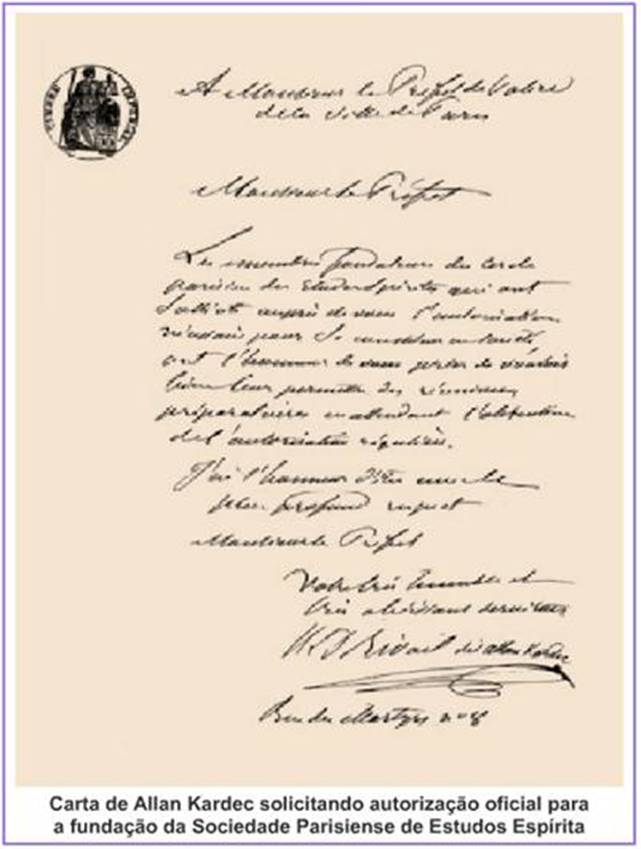 TIMBRE IMPERIAL
A Monsieur le Préfet de Police
de la Ville de Paris
Monsieur le Préfet
Les membres fondateurs du Cercle
parisien des Etudes Spirites qui ont
sollicité auprès de vous l'autorisation
nécessaire pour se constituer en Société,
ont l'honneur de vous prier de vouloir
bien leur permettre des réunions
préparatoires en attendant l'obtention
de l'autorisation régulière.
J'ai l'honneur d'être avec le
plus profond respect
Monsieur le Préfet
Votre très humble et
très obéissant serviteur
H L D Rivail dit Allan Kardec
Rue des Martyrs n° 8
Carta de Allan Kardec solicitando autorização oficial para
a fundação da Sociedade Parisiense de Estudos Espírita